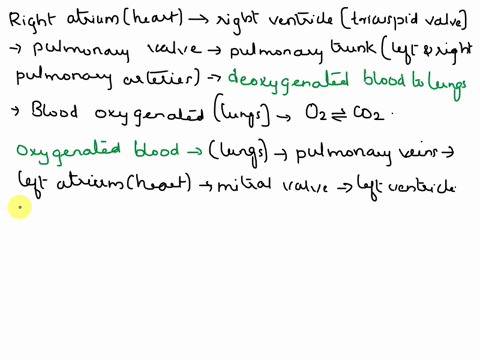 Right atrium (heart) → right ventricle [tricuspid valve]
→ pulmonary valve → pulmonary trunk (left & right
pulmonary arteries) → deoxygenated blood to lungs
→ Blood oxygenated (lungs) → O2 ⇌ CO2.
oxygenated blood → (lungs) → pulmonary veins →
left atrium (heart) → mitral valve → left ventricle